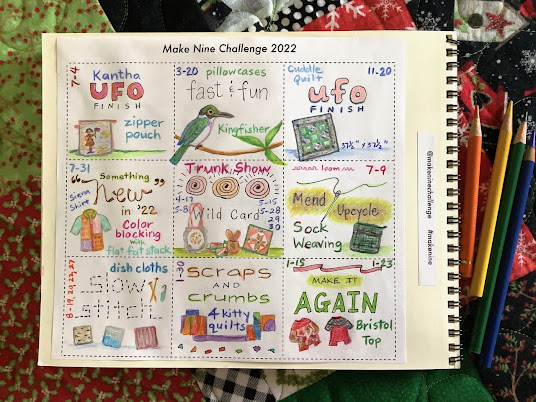 Make Nine Challenge 2022
7-4
Kantha
UFO
FINISH
zipper
pouch
3-20 pillowcases
fast & fun
Kingfisher
Cuddle
Quilt
11-20
ufo
FINISH
37½" x 37½"
7-31
Something
"new"
in '22
Siena
Shirt
Color
blocking
with
flat fat stack
Trunk Show
4-17
5-8
5-15
5-28
29
30
Wild Card
loom
7-9
Mend
Upcycle
Sock
Weaving
dish cloths
slow
stitch
8-19, 20, 27, 27
1-30
SCRAPS
AND
crumbs
4 kitty
quilts
1-15
1-23
MAKE IT
AGAIN
Bristol
Top
@makeninechallenge #makenine